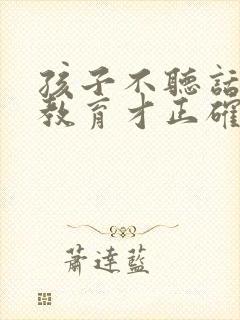 孩子不聽話
教育才正確
蕭達藍